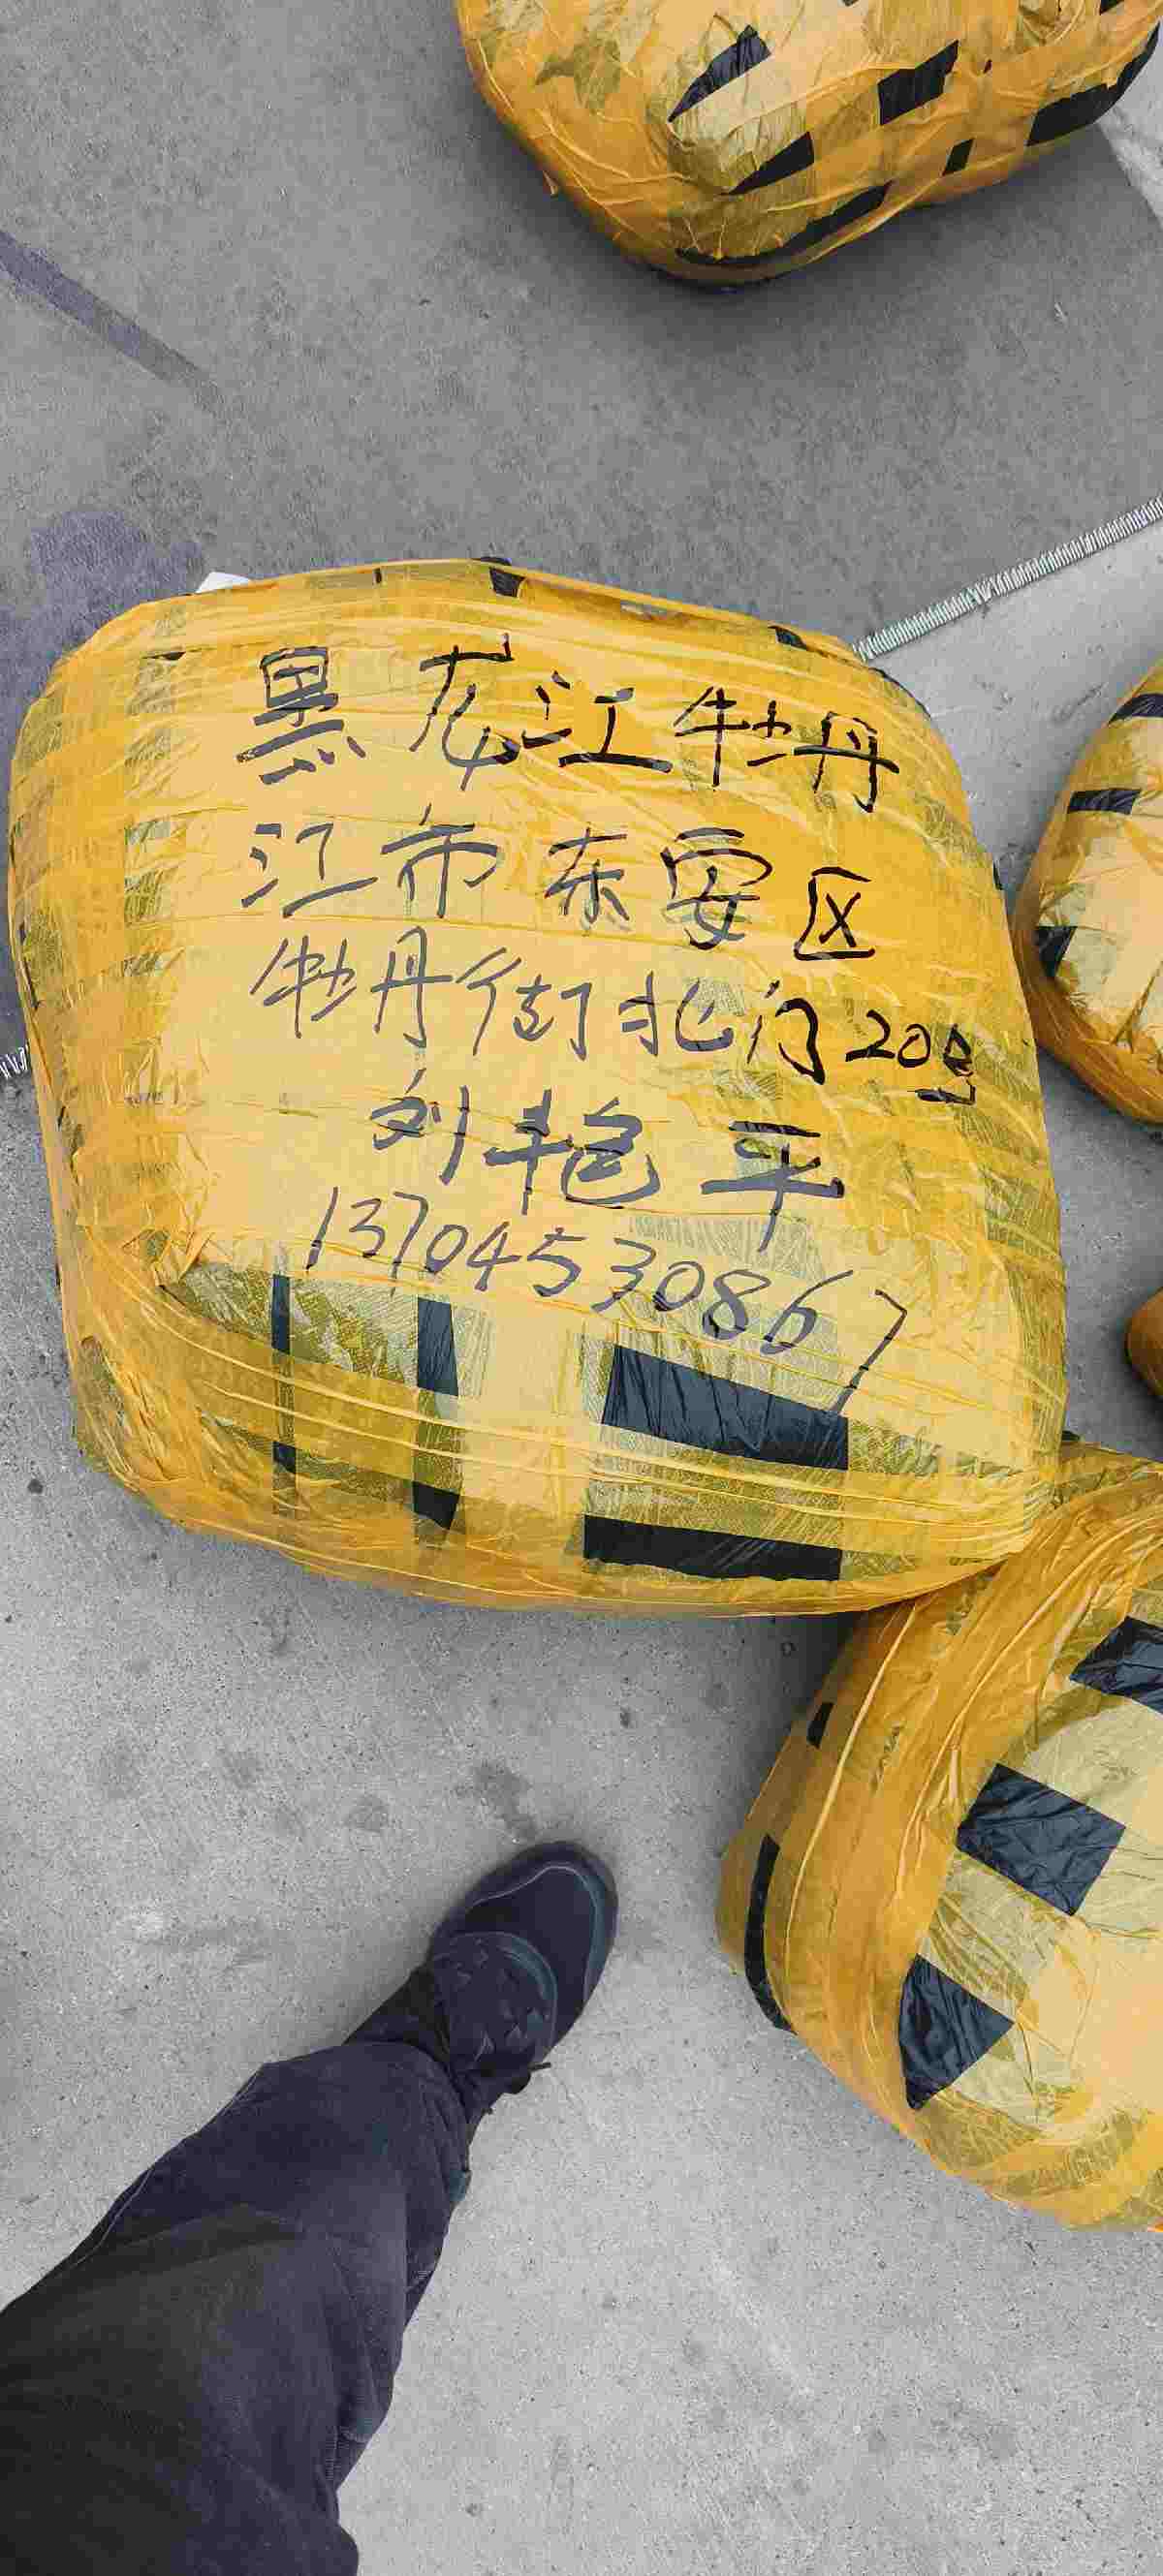 黑龙江牡丹
江市东安区
牡丹街北门20
刘艳平
13704530867